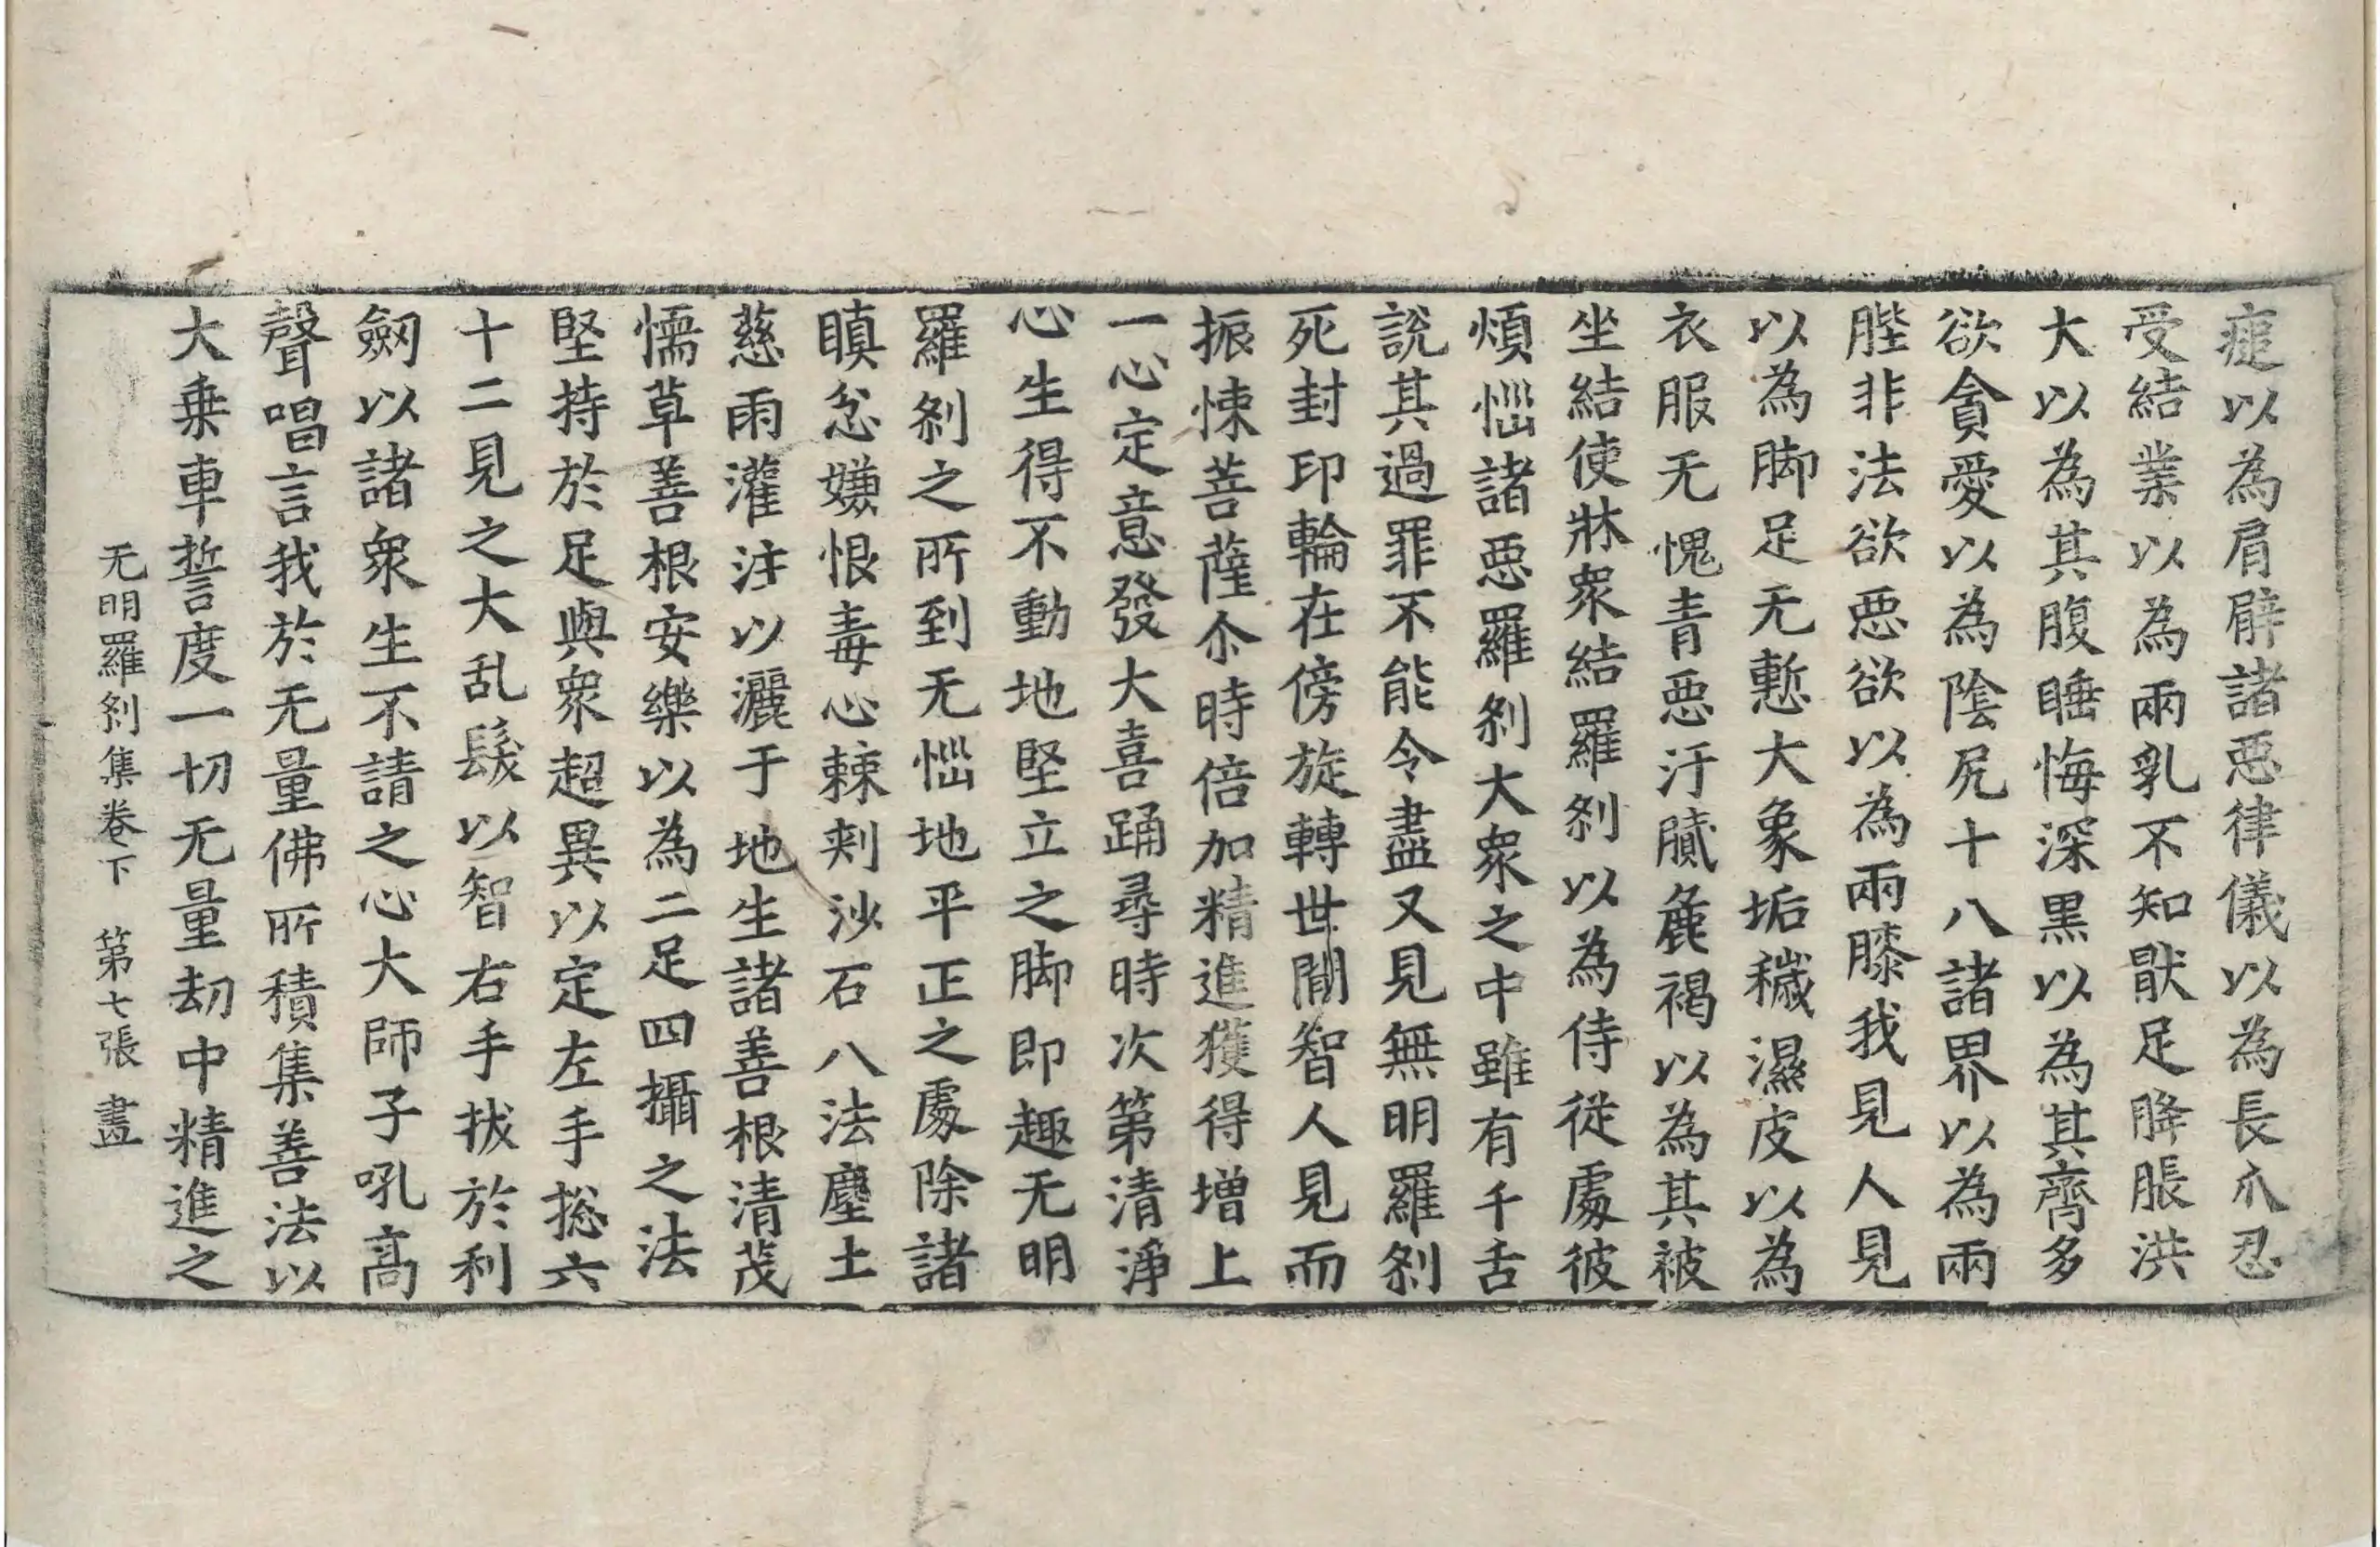 痆以為肩臂諸惡律儀以為長爪忍
受結業以為兩乳不知猒足胮脹洪
大以為其腹睡悔深黑以為其齊多
欲貪愛以為陰尻十八諸界以為兩
䏶非法欲惡欲以為兩膝我見人見
以為脚足无慙大象垢穢濕皮以為
衣服无愧青惡汙膩麁褐以為其被
坐結使牀眾結羅剎以為侍從處彼
煩惱諸惡羅剎大眾之中雖有千舌
說其過罪不能令盡又見無明羅剎
死封印輪在傍旋轉世閒智人見而
振悚菩薩尒時倍加精進獲得增上
一心定意發大喜踊尋時次第清淨
心生得不動地堅立之脚即趣无明
羅剎之所到无惱地平正之處除諸
瞋忿嫌恨毒心棘刾沙石八法塵土
慈雨灌注以灑于地生諸善根清茂
懦草善根安樂以為二足四攝之法
堅持於足與眾超異以定左手捴六
十二見之大乱髮以智右手拔於利
劒以諸眾生不請之心大師子吼高
聲唱言我於无量佛所積集善法以
大乗車誓度一切无量劫中精進之
无明羅剎集卷下 第七張 畫